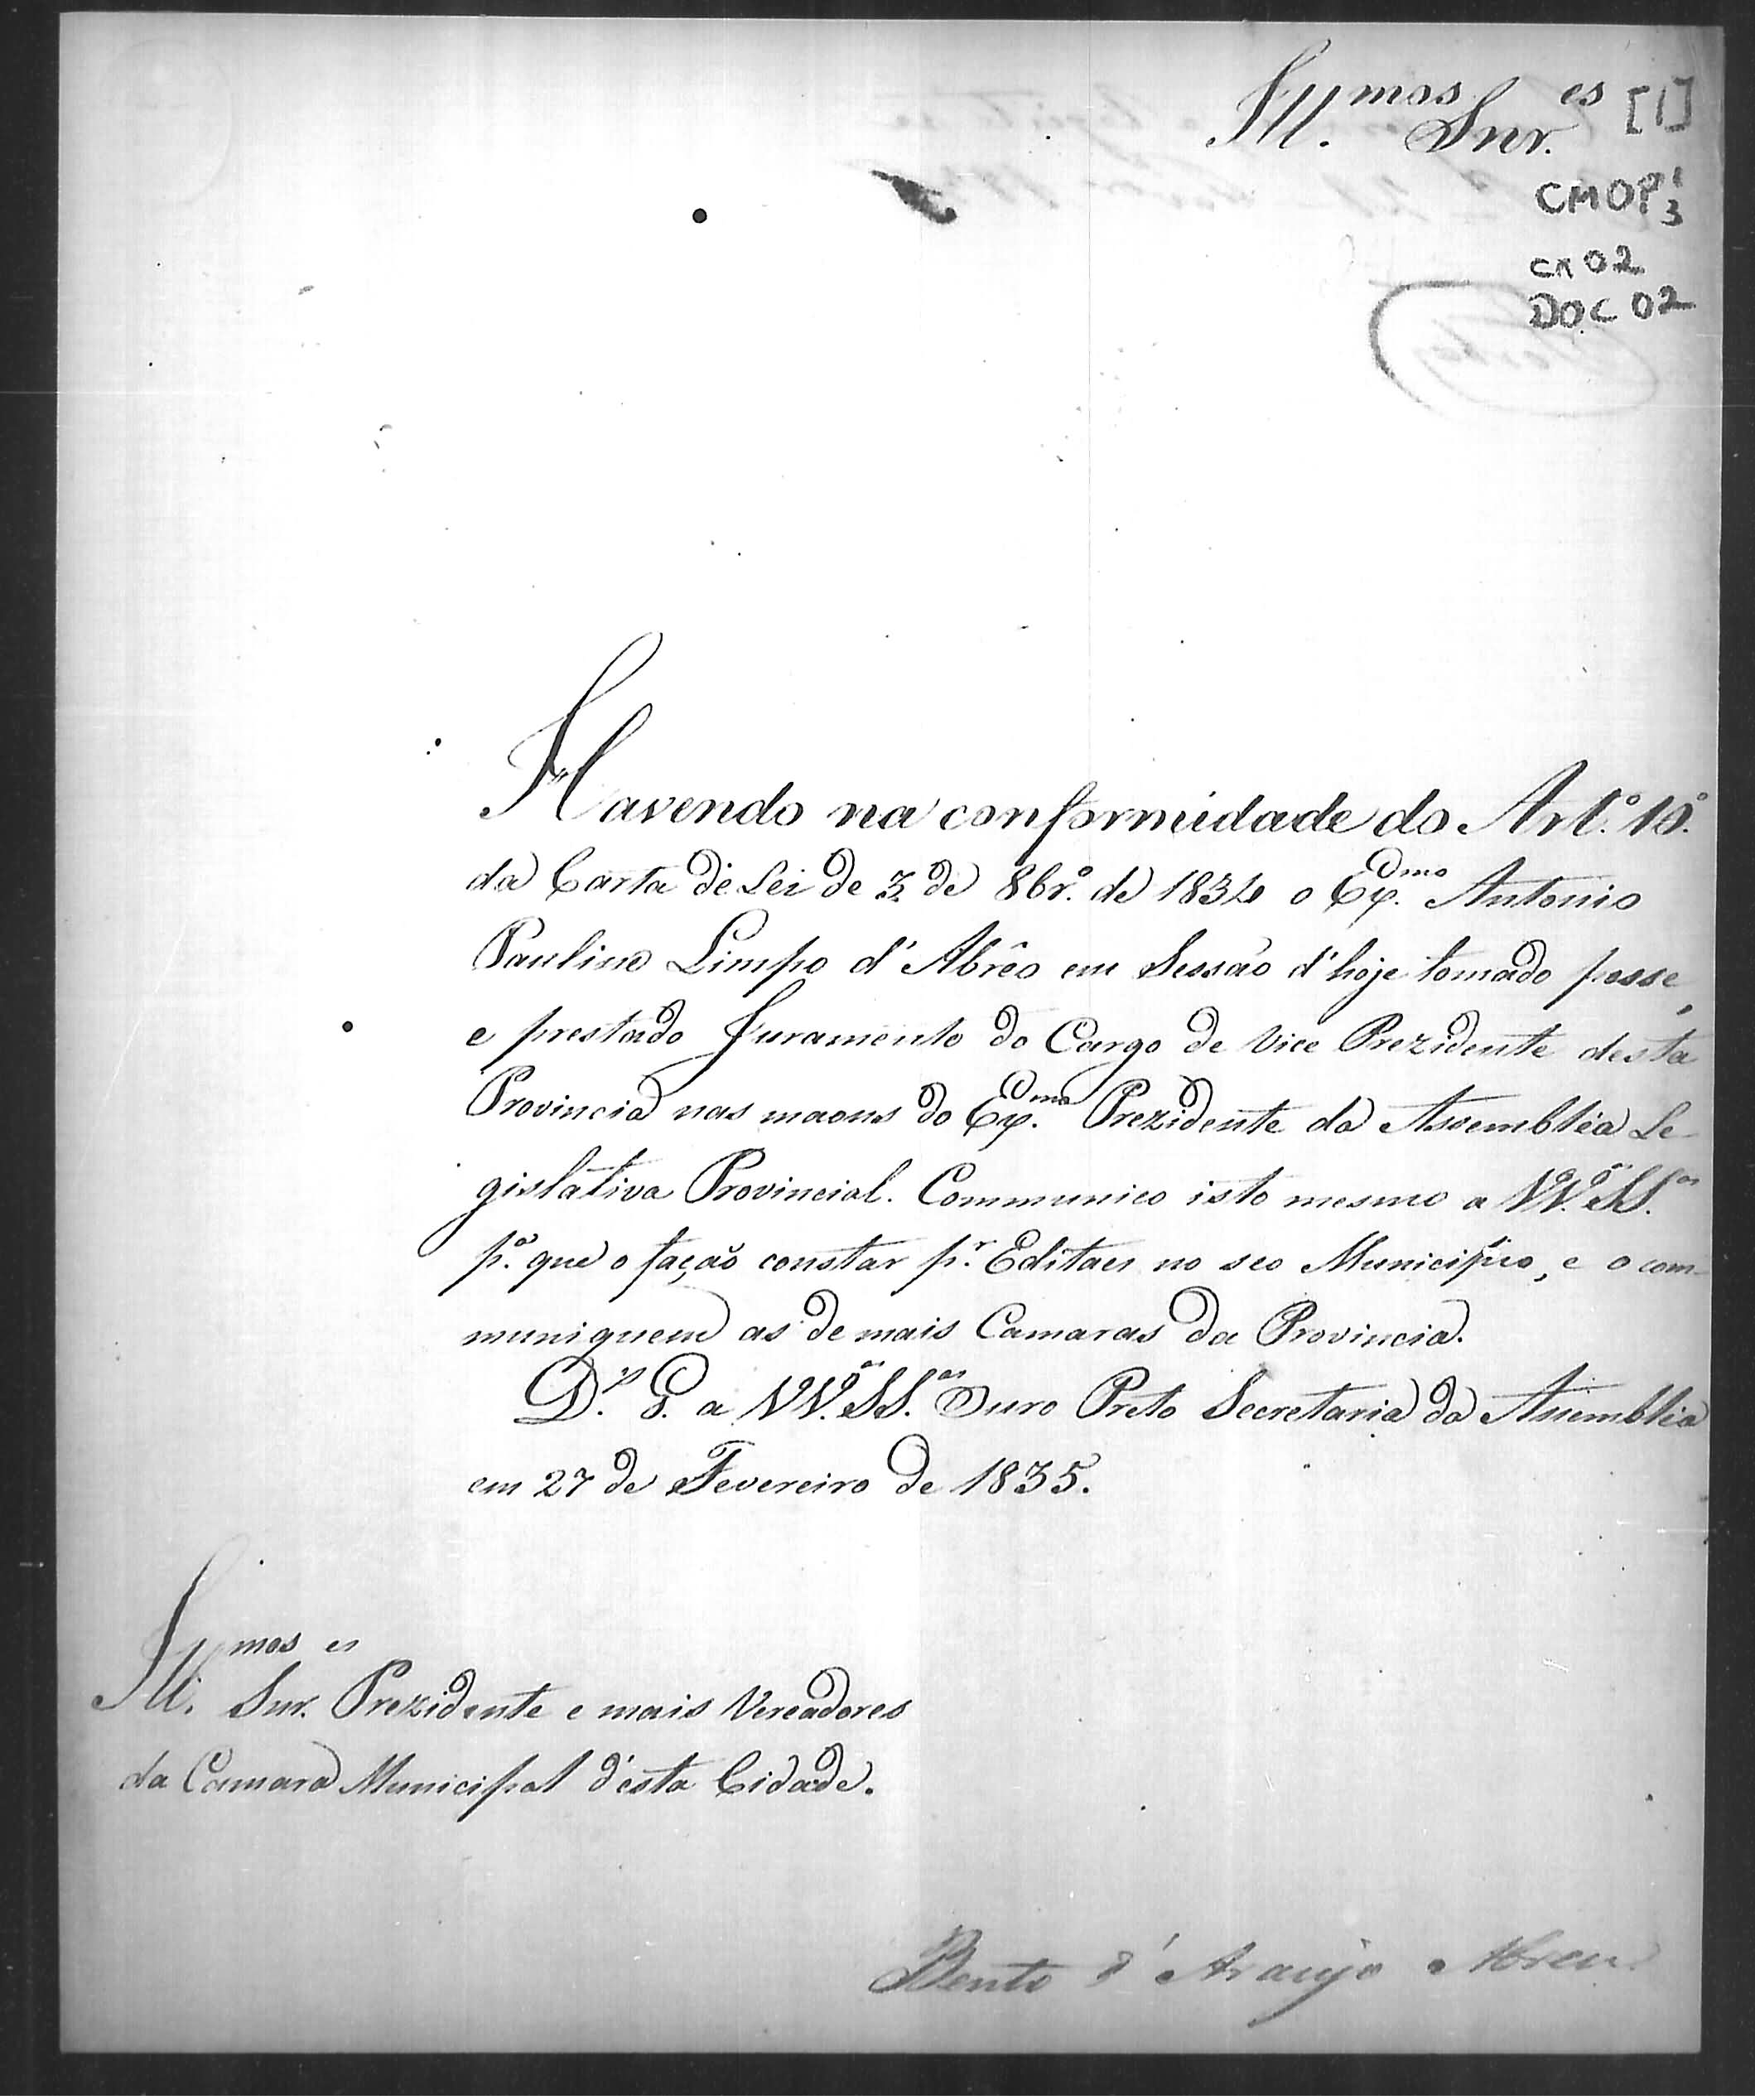 Ill.mos Snr.es [1]
CMOP 1/3
cx 02
DOC 02
Havendo na conformidade do Art.º 10.º
da Carta de Lei de 3 de 8br.º de 1834 o Ex.mo Antonio
Paulino Limpo d'Abrêo em Sessão d'hoje tomado posse,
e prestado Juramento do Cargo de Vice Prezidente desta
Provincia nas maons do Ex.mo Prezidente da Assembléa Le-
gislativa Provincial. Communico isto mesmo a VV.as SS.as
p.a que o fação constar p.r Editaes no seo Municipio, e o com-
muniquem as de mais Camaras da Provincia.
D.s G. a VV.as SS.as Ouro Preto Secretaria da Assembléa
em 27 de Fevereiro de 1835.
Ill.mos Snr.es Prezidente e mais Vereadores
da Camara Municipal d'esta Cidade.
Bento d'Araujo Abreu